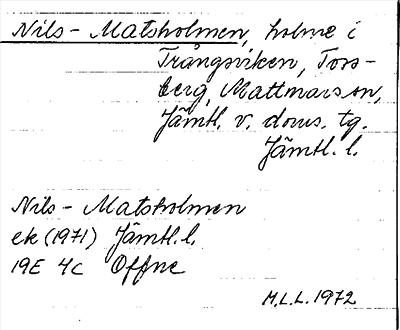 Nils-Matsholmen, holme i
Trångsviken, Tors-
berg, Mattmarson,
Jämtl. v. doms. tg.
Jämtl. l.
Nils-Matsholmen
ek (1971) Jämtl. l.
19E 4c Offne
M.L.L. 1972